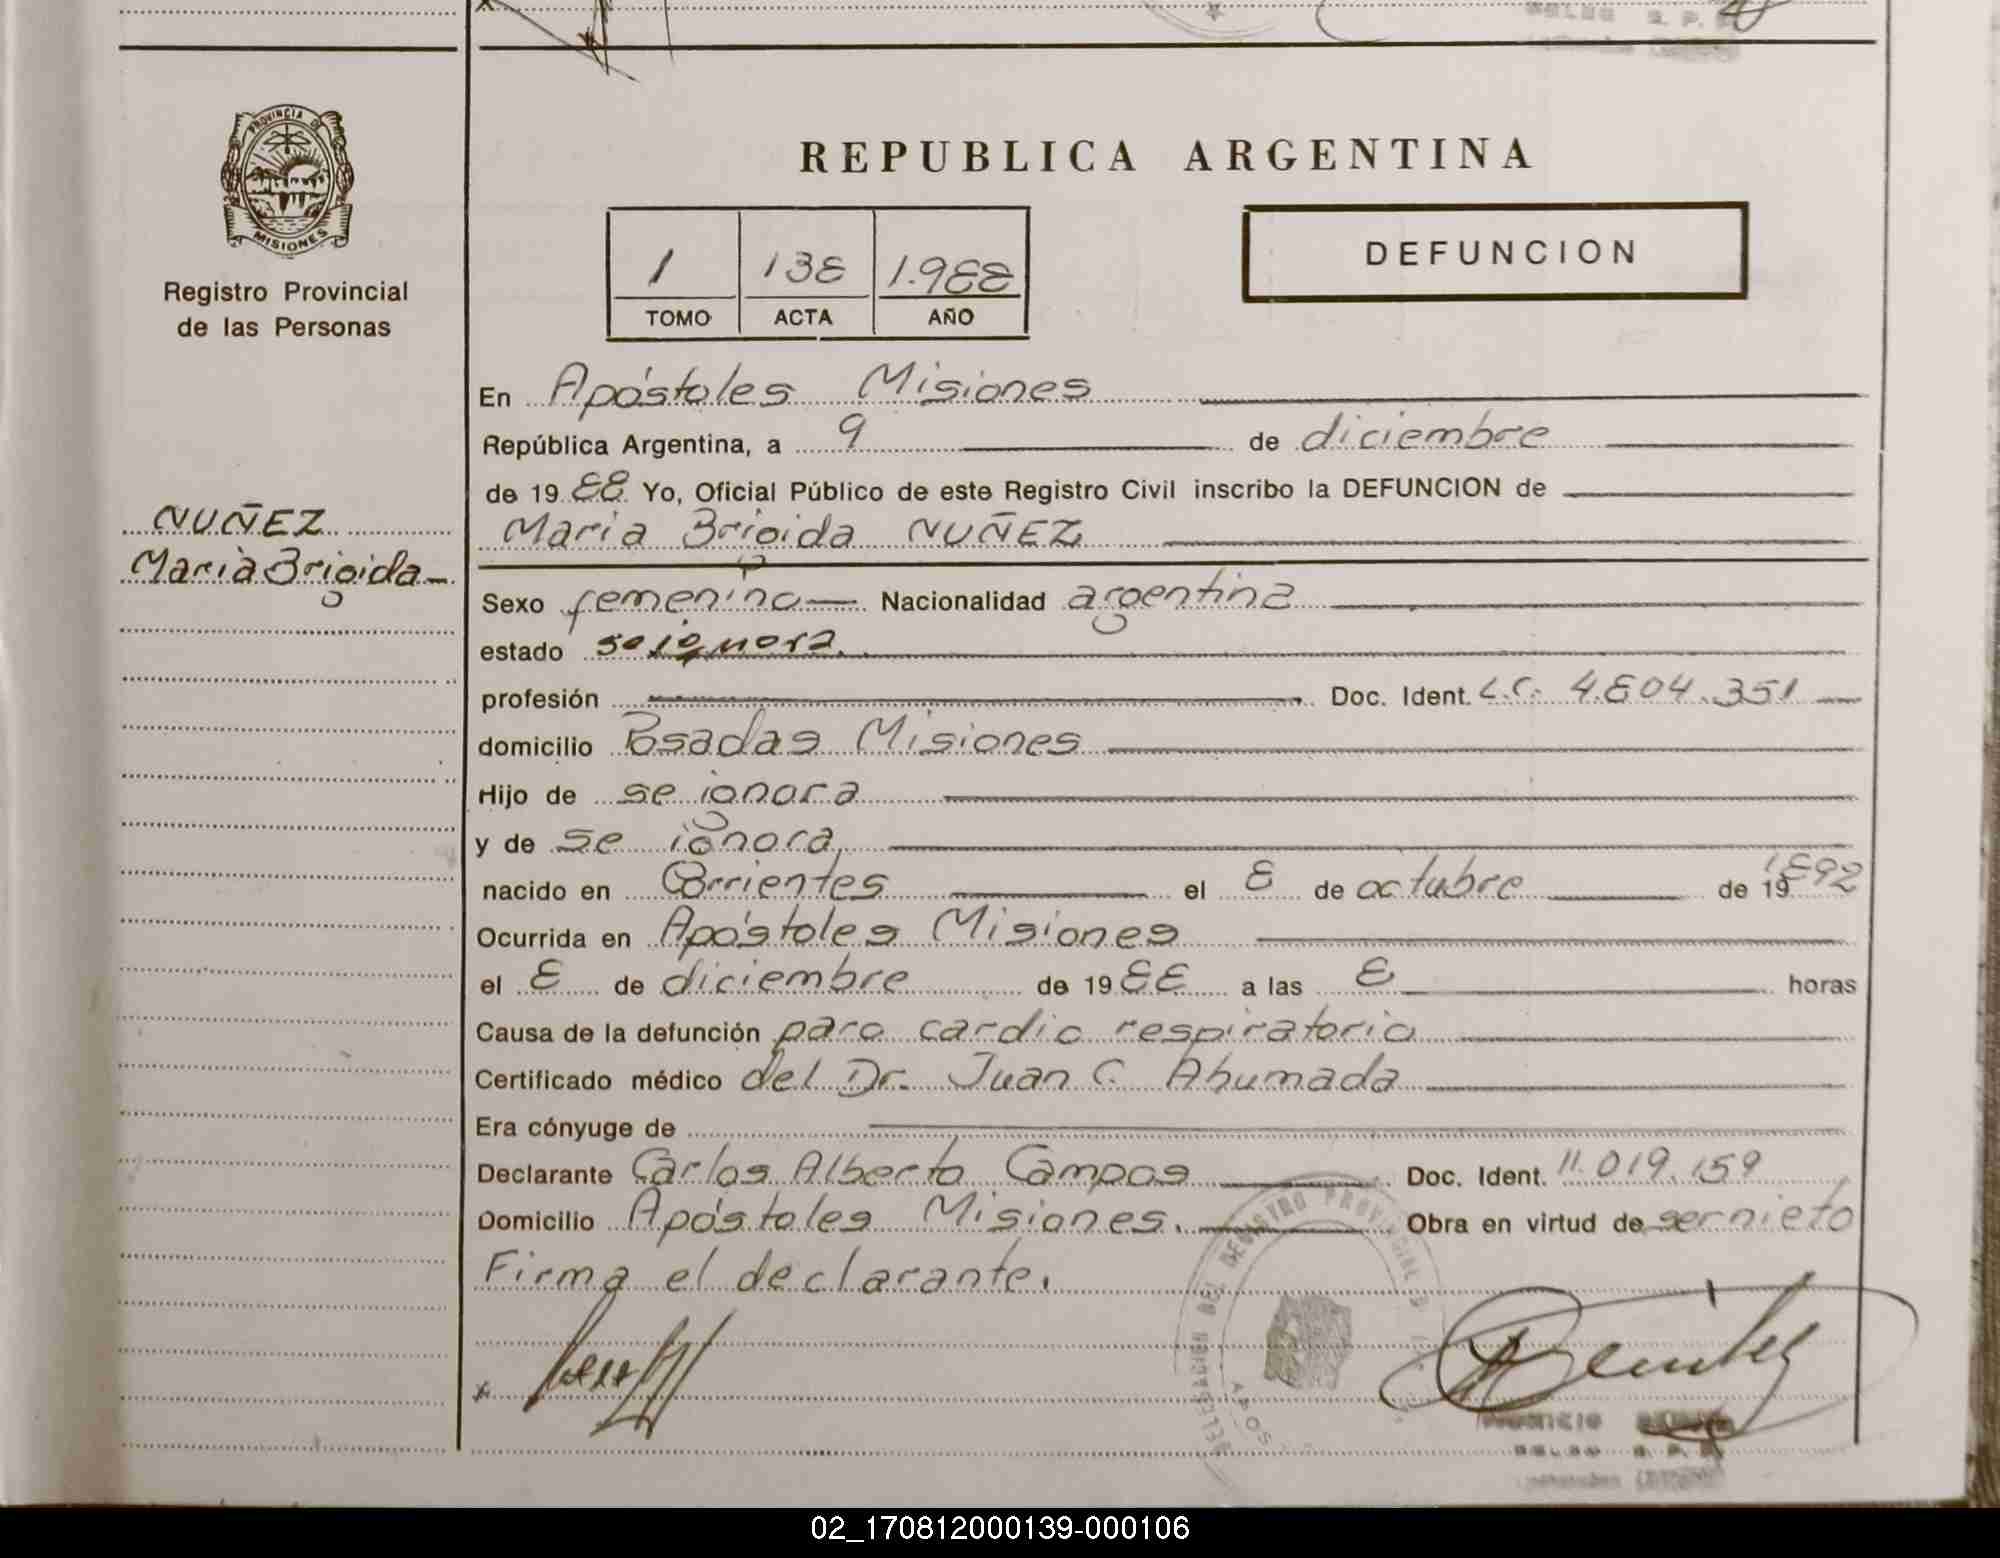 REPUBLICA ARGENTINA
PROVINCIA DE
MISIONES
Registro Provincial
de las Personas
1 138 1.988
TOMO ACTA AÑO
DEFUNCION
NUÑEZ
Maria Brigida
En Apóstoles Misiones
República Argentina, a 9 de diciembre
de 19 88 Yo, Oficial Público de este Registro Civil inscribo la DEFUNCION de
Maria Brigida NUÑEZ
Sexo femenino Nacionalidad argentina
estado se ignora.
profesión Doc. Ident. L.C. 4.804.351
domicilio Posadas Misiones
Hijo de se ignora
y de se ignora
nacido en Corrientes el 8 de octubre de 19 1892
Ocurrida en Apóstoles Misiones
el 8 de diciembre de 19 88 a las 8 horas
Causa de la defunción paro cardio respiratorio
Certificado médico del Dr. Juan C. Ahumada
Era cónyuge de
Declarante Carlos Alberto Campos Doc. Ident. 11.019.159
Domicilio Apóstoles Misiones. Obra en virtud de ser nieto
Firma el declarante.
02_170812000139-000106